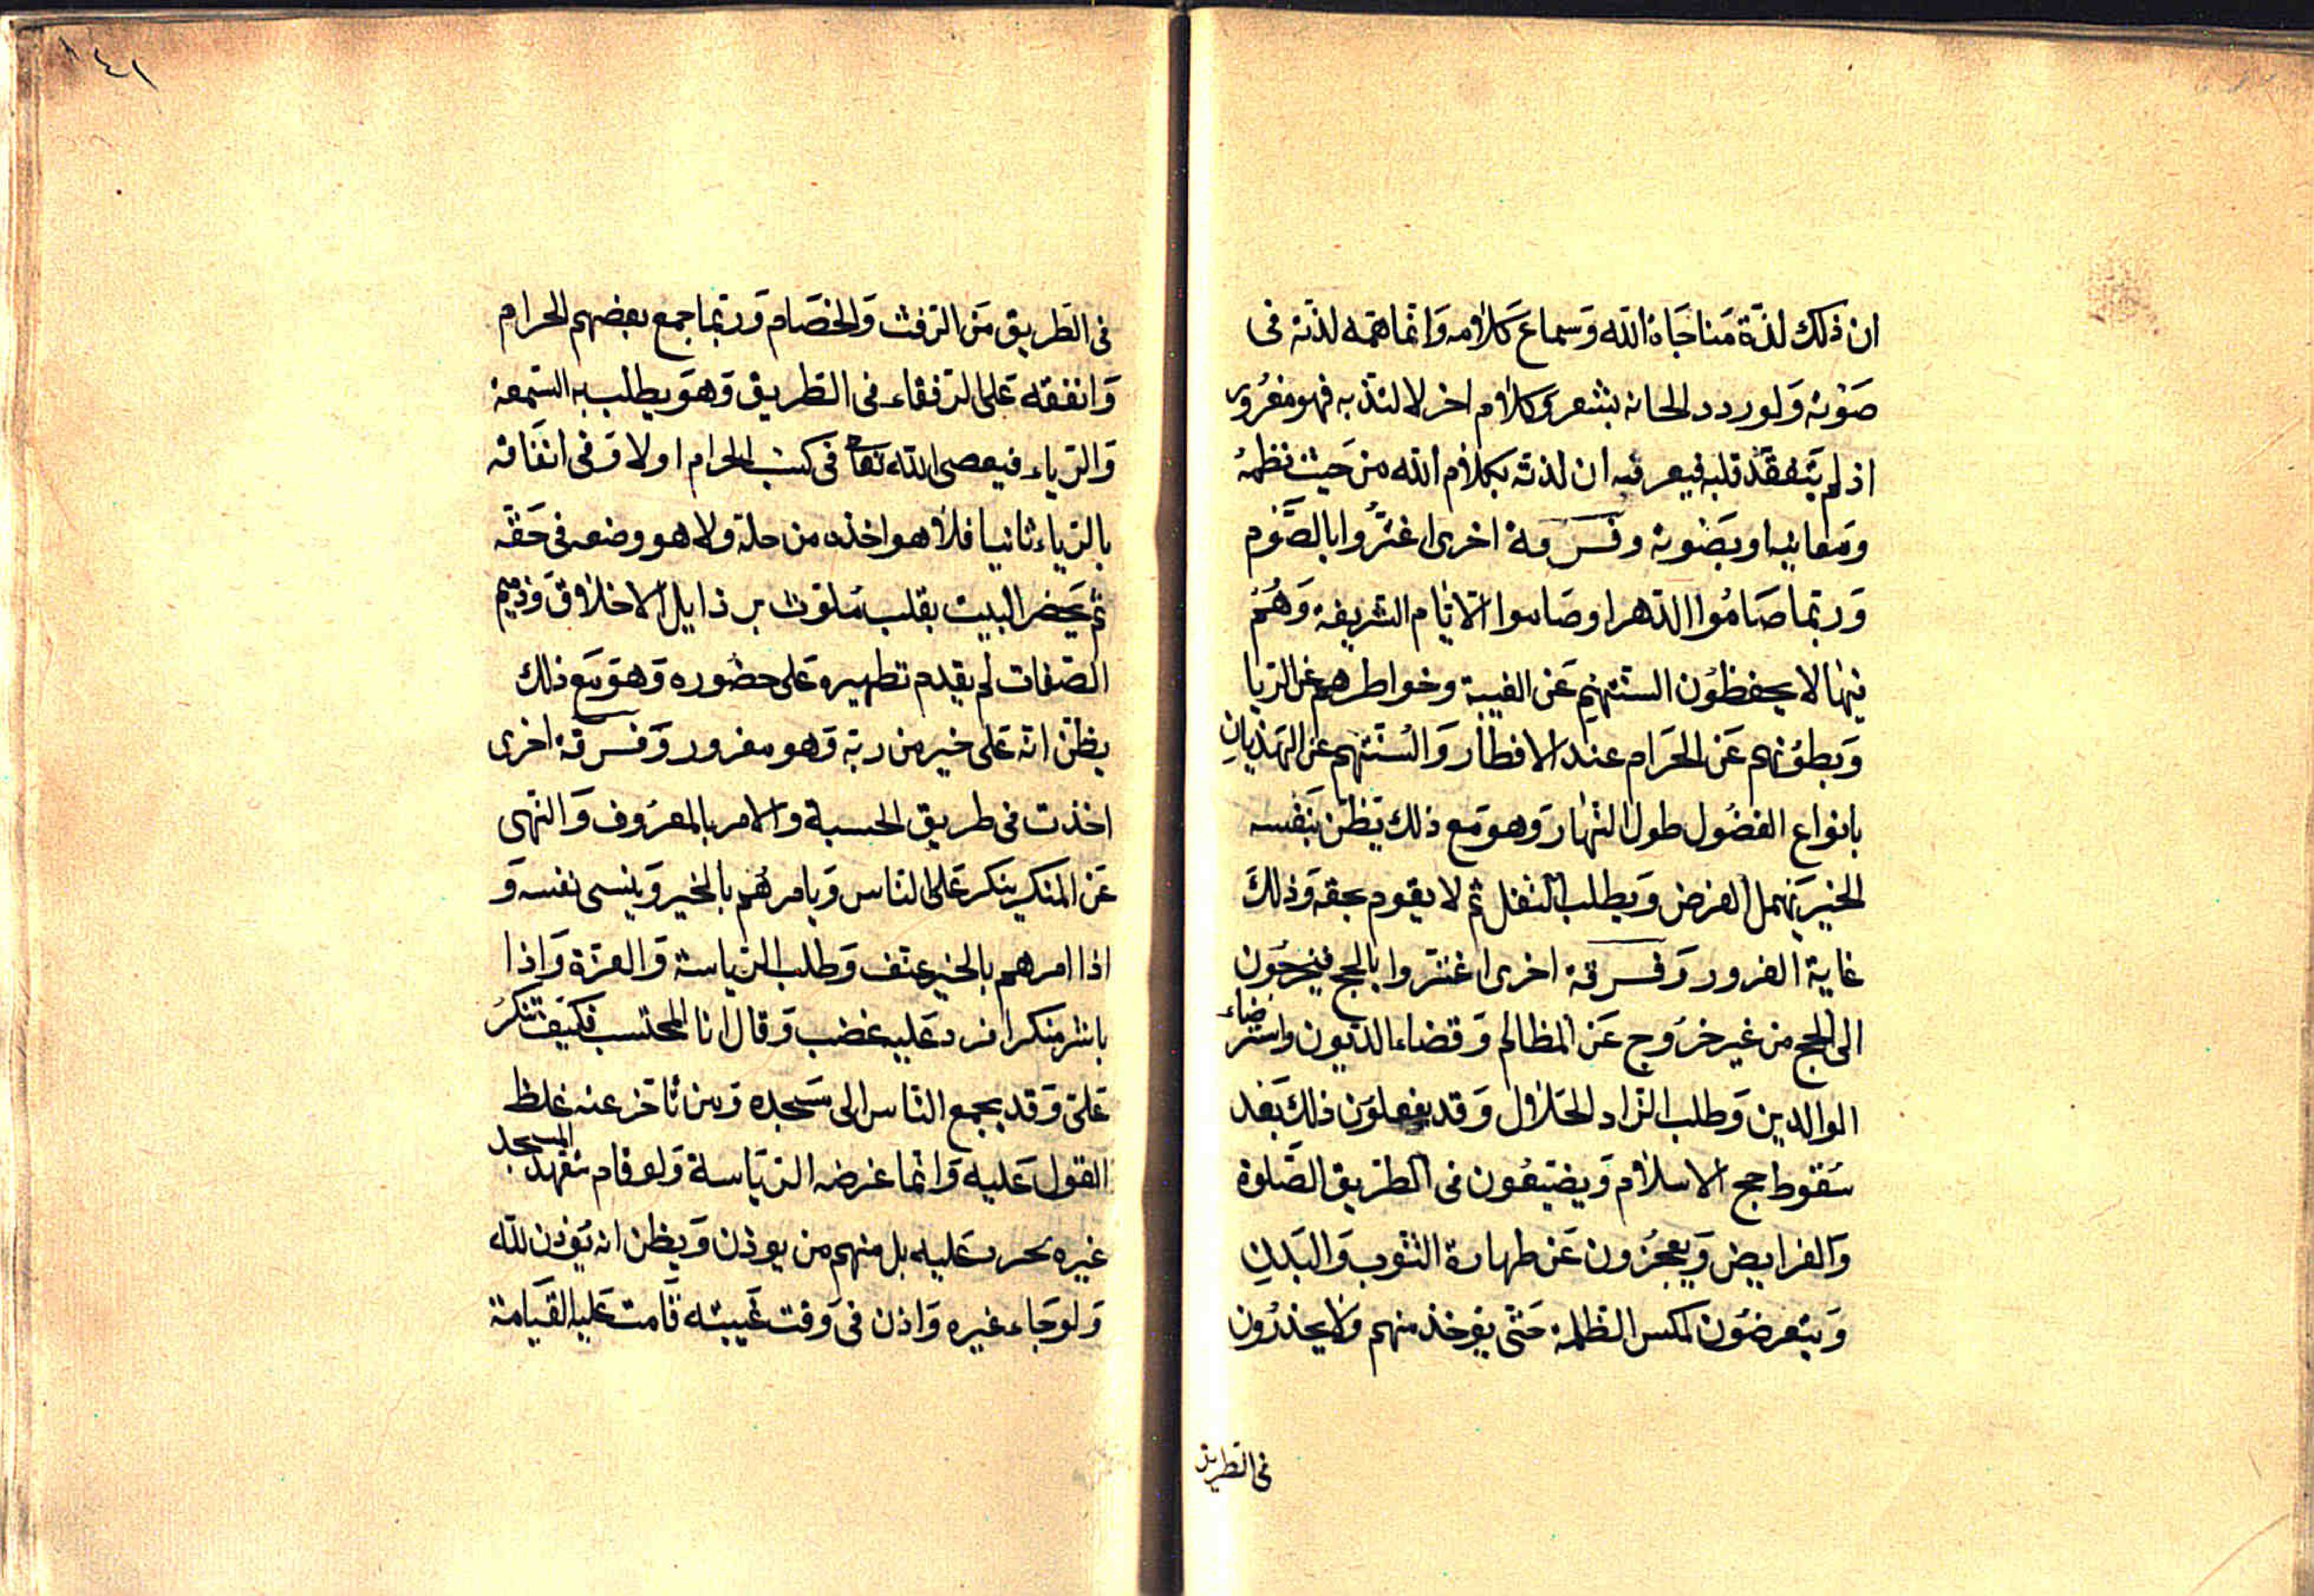 ان ذلك لذة مناجاة الله وسماع كلامه وانما همه لذته في
صوته ولو ردد الحانه بشعر وكلام اخر لالتذ به فهو مغرور
اذ لم يتفقد قلبه فيعرفه ان لذته بكلام الله من حيث نظمه
ومعانيه او بصوته وفرقة اخرى اغتروا بالصوم
وربما صاموا الدهر او صاموا الايام الشريفة وهم
فيها لا يحفظون السنتهم عن الغيبة وخواطرهم عن الريا
وبطونهم عن الحرام عند الافطار والسنتهم عن الهذيان
بانواع الفضول طول النهار وهو مع ذلك يظن بنفسه
الخير يهمل الفرض ويطلب النفل ثم لا يقوم بحقه وذلك
غاية الغرور وفرقة اخرى اغتروا بالحج فيخرجون
الى الحج من غير خروج عن المظالم وقضاء الديون واسترضاء
الوالدين وطلب الزاد الحلال وقد يفعلون ذلك بعد
سقوط حج الاسلام ويضيعون في الطريق الصلوة
والفرايض ويعجزون عن طهارة الثوب والبدن
ويتعرضون لمكس الظلمة حتى يؤخذ منهم ولا يحذرون
في الطريق
١٤١
في الطريق من الرفث والخصام وربما جمع بعضهم الحرام
وانفقه على الرفقاء في الطريق وهو يطلب به السمعة
والرياء فيعصى الله تعا في كسب الحرام اولا وفي انفاقه
بالرياء ثانيا فلا هو اخذه من حله ولا هو وضعه في حقه
ثم يحضر البيت بقلب ملوث برذايل الاخلاق وذميم
الصفات لم يقدم تطهيره على حضوره وهو مع ذلك
يظن انه على خير من ربه وهو مغرور وفرقة اخرى
اخذت في طريق الحسبة والامر بالمعروف والنهى
عن المنكر ينكر على الناس ويامرهم بالخير وينسى نفسه و
اذا امرهم بالخير عنف وطلب الرياسة والعزة واذا
باشر منكرا فرد عليه غضب وقال انا المحتسب فكيف تنكر
على وقد يجمع الناس الى مسجده ومن تاخر عنه غلظ
القول عليه وانما غرضه الرياسة ولو قام بتعهد المسجد
غيره لحرد عليه بل منهم من يوذن ويظن انه يؤذن لله
ولو جاء غيره واذن في وقت غيبته قامت عليه القيامة